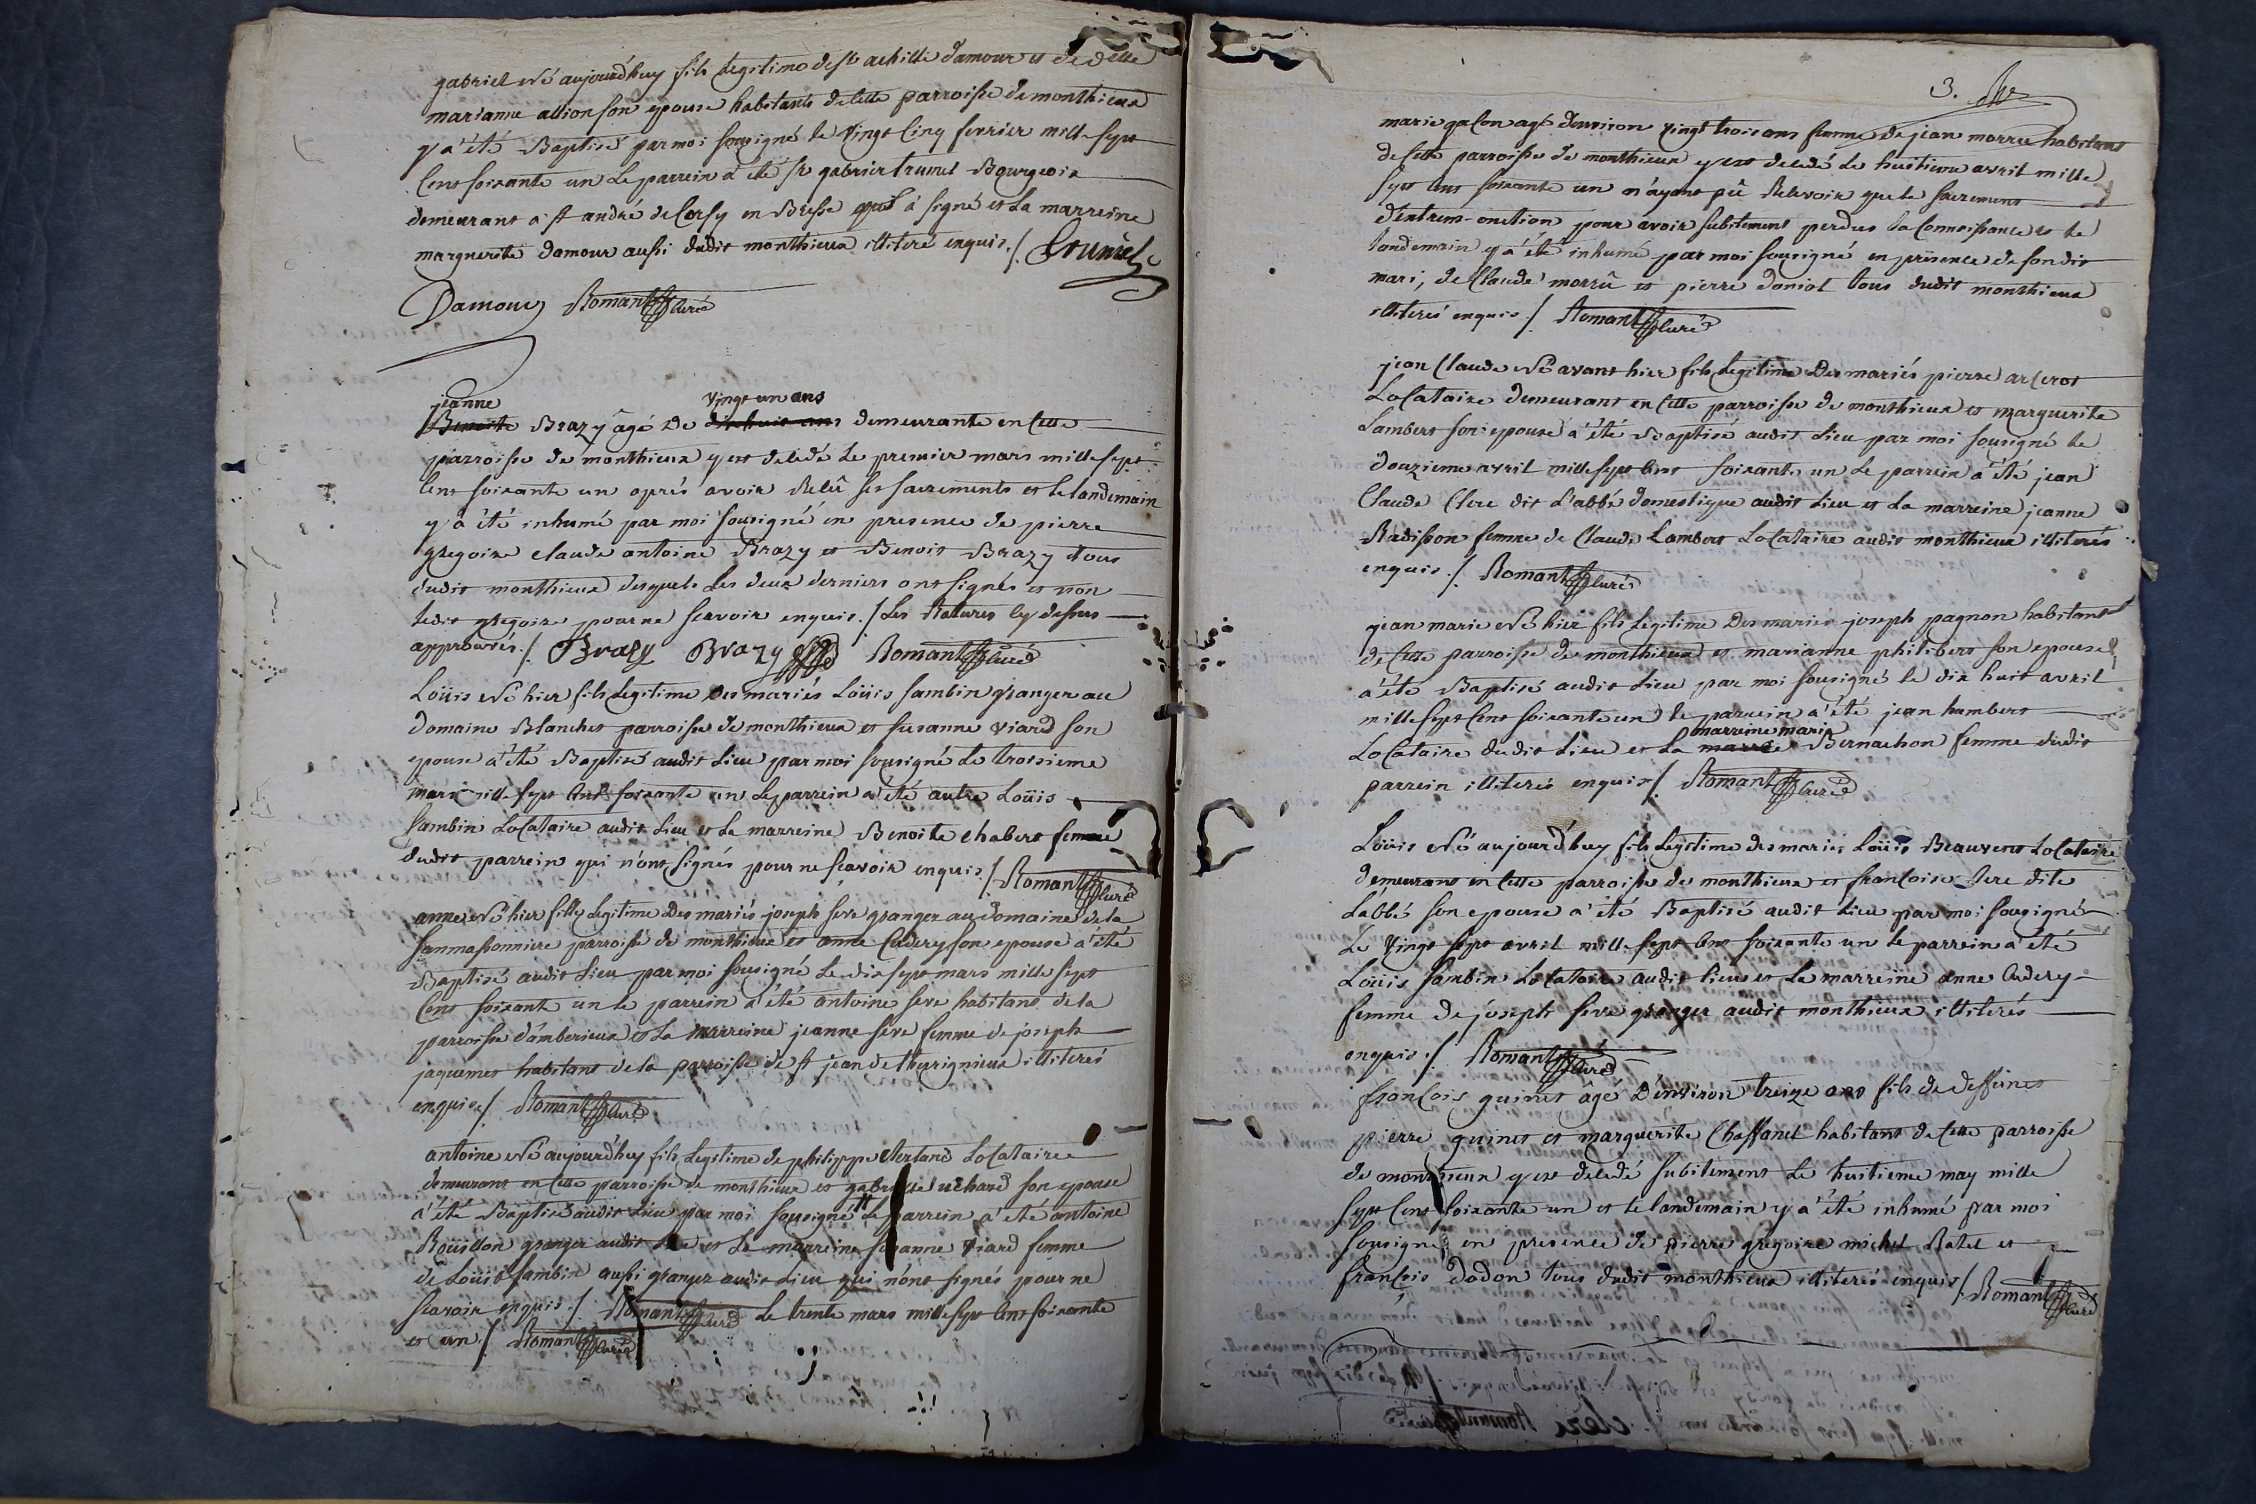 gabriel né aujourd'huy fils legitime de sr achille damour et de delle
marianne allion son epouse habitants de cette parroisse de monthieux
y a été Baptisé par moi sousigné le vingt cinq fevrier mille sept
cent soixante un Le parrein a été sr gabriel trunel Bourgeois
demeurant a st andré de Corsy en Bresse qui à signé et La marreine
marguerite damour aussi dudit monthieux illiteré enquis ./. trunel
Damour Romant Curé
jeanne vingt un ans
Benoite Brazy âgé De dix huit ans demeurante en cette
parroisse de monthieux y est decedé Le premier mars mille sept
cent soixante un après avoir Reçû ses sacrements et le landemain
y à été inhumé par moi sousigné en presence de pierre
gregoire claude antoine Brazy et Benoit Brazy tous
dudit monthieux desquels Les deux derniers ont signés et non
ledit gregoire pour ne scavoir enquis ./. Les Ratures cy dessus
approuvés ./. Brazy Brazy Romant Curé
Loüis né hier fils Legitime Des mariés Loüis sambin granger au
domaine Blanchet parroisse de monthieux et susanne viard son
epouse a été Baptisé audit Lieu par moi sousigné Le troisieme
mars mille sept cent soixante un Le parrein a été autre Loüis
sambin Locataire audit Lieu et La marreine Benoite chabert femme
dudit parrein qui n'ont signés pour ne scavoir enquis ./. Romant Curé
anne née hier fille Legitime Des mariés joseph seve granger au domaine de la
sammassonniere parroisse de monthieux et anne Cudery son epouse a été
Baptisé audit Lieu par moi sousigné Le dix sept mars mille sept
cent soixante un le parrein a été antoine seve habitant de la
parroisse d'amberieux et La marreine jeanne seve femme de joseph
jaquemet habitant de la parroisse de st jean de thurignieux illiterés
enquis ./. Romant Curé
antoine né aujourd'huy fils Legitime de philippe Locataire
demeurant en cette parroisse de monthieux et gabrielle richard son epouse
a été Baptisé audit Lieu par moi sousigné Le parrein a été antoine
Roüillon granger audit Lieu et La marreine susanne viard femme
de Loüis sambin aussi granger audit Lieu qui n'ont signés pour ne
scavoir enquis ./. Romant Curé Le trente mars mille sept cent soixante
et un ./. Romant Curé
3.
marie galon agé d'environ vingt trois ans femme de jean morru habitant
de cette parroisse de monthieux y est decedé Le huitieme avril mille
sept cent soixante un n'ayant pû Recevoir que le sacrement
d'extreme-onction pour avoir subitement perdue La Connoissance et le
landemain y a été inhumé par moi sousigné en presence de son dit
mari, de Claude morrû et pierre doniol tous dudit monthieux
illiterés enquis ./. Romant Curé
jean Claude né avant hier fils Legitime Des mariés pierre
Locataire demeurant en cette parroisse de monthieux et marguerite
Lambert son epouse a été Baptisé audit Lieu par moi sousigné le
douzieme avril mille sept cent soixante un Le parrein a été jean
Claude Clere dit L'abbé domestique audit Lieu et La marreine jeanne
Radisson femme de Claude Lambert Locataire audit monthieux illiterés
enquis ./. Romant Curé
jean marie né hier fils Legitime Des mariés joseph pagnon habitant
de cette parroisse de monthieux et marianne philibert son epouse
a été Baptisé audit Lieu par moi sousigné le dix huit avril
mille sept cent soixante un le parrein a été jean humbert
marreine marie
Locataire dudit Lieu et La Bernachon femme dudit
parrein illiterés enquis ./. Romant Curé
Loüis né aujourd'huy fils Legitime des mariés Loüis Beauvent Locataire
demeurant en cette parroisse de monthieux et francoise Clere dite
Labbé son epouse a été Baptisé audit Lieu par moi sousigné
Le vingt sept avril mille sept cent soixante un le parrein a été
Loüis sambin Locataire audit Lieu et La marreine anne Cudery
femme de joseph seve granger audit monthieux illiterés
enquis ./. Romant Curé
francois guinet âgé D'environ treize ans fils de deffunct
pierre guinet et marguerite Chaffanel habitant de cette parroisse
de monthieux y est decedé subitement Le huitieme may mille
sept cent soixante un et le landemain y a été inhumé par moi
sousigné en presence de pierre gregoire michel Ratel et
francois dodon tous dudit monthieux illiterés enquis ./. Romant Curé